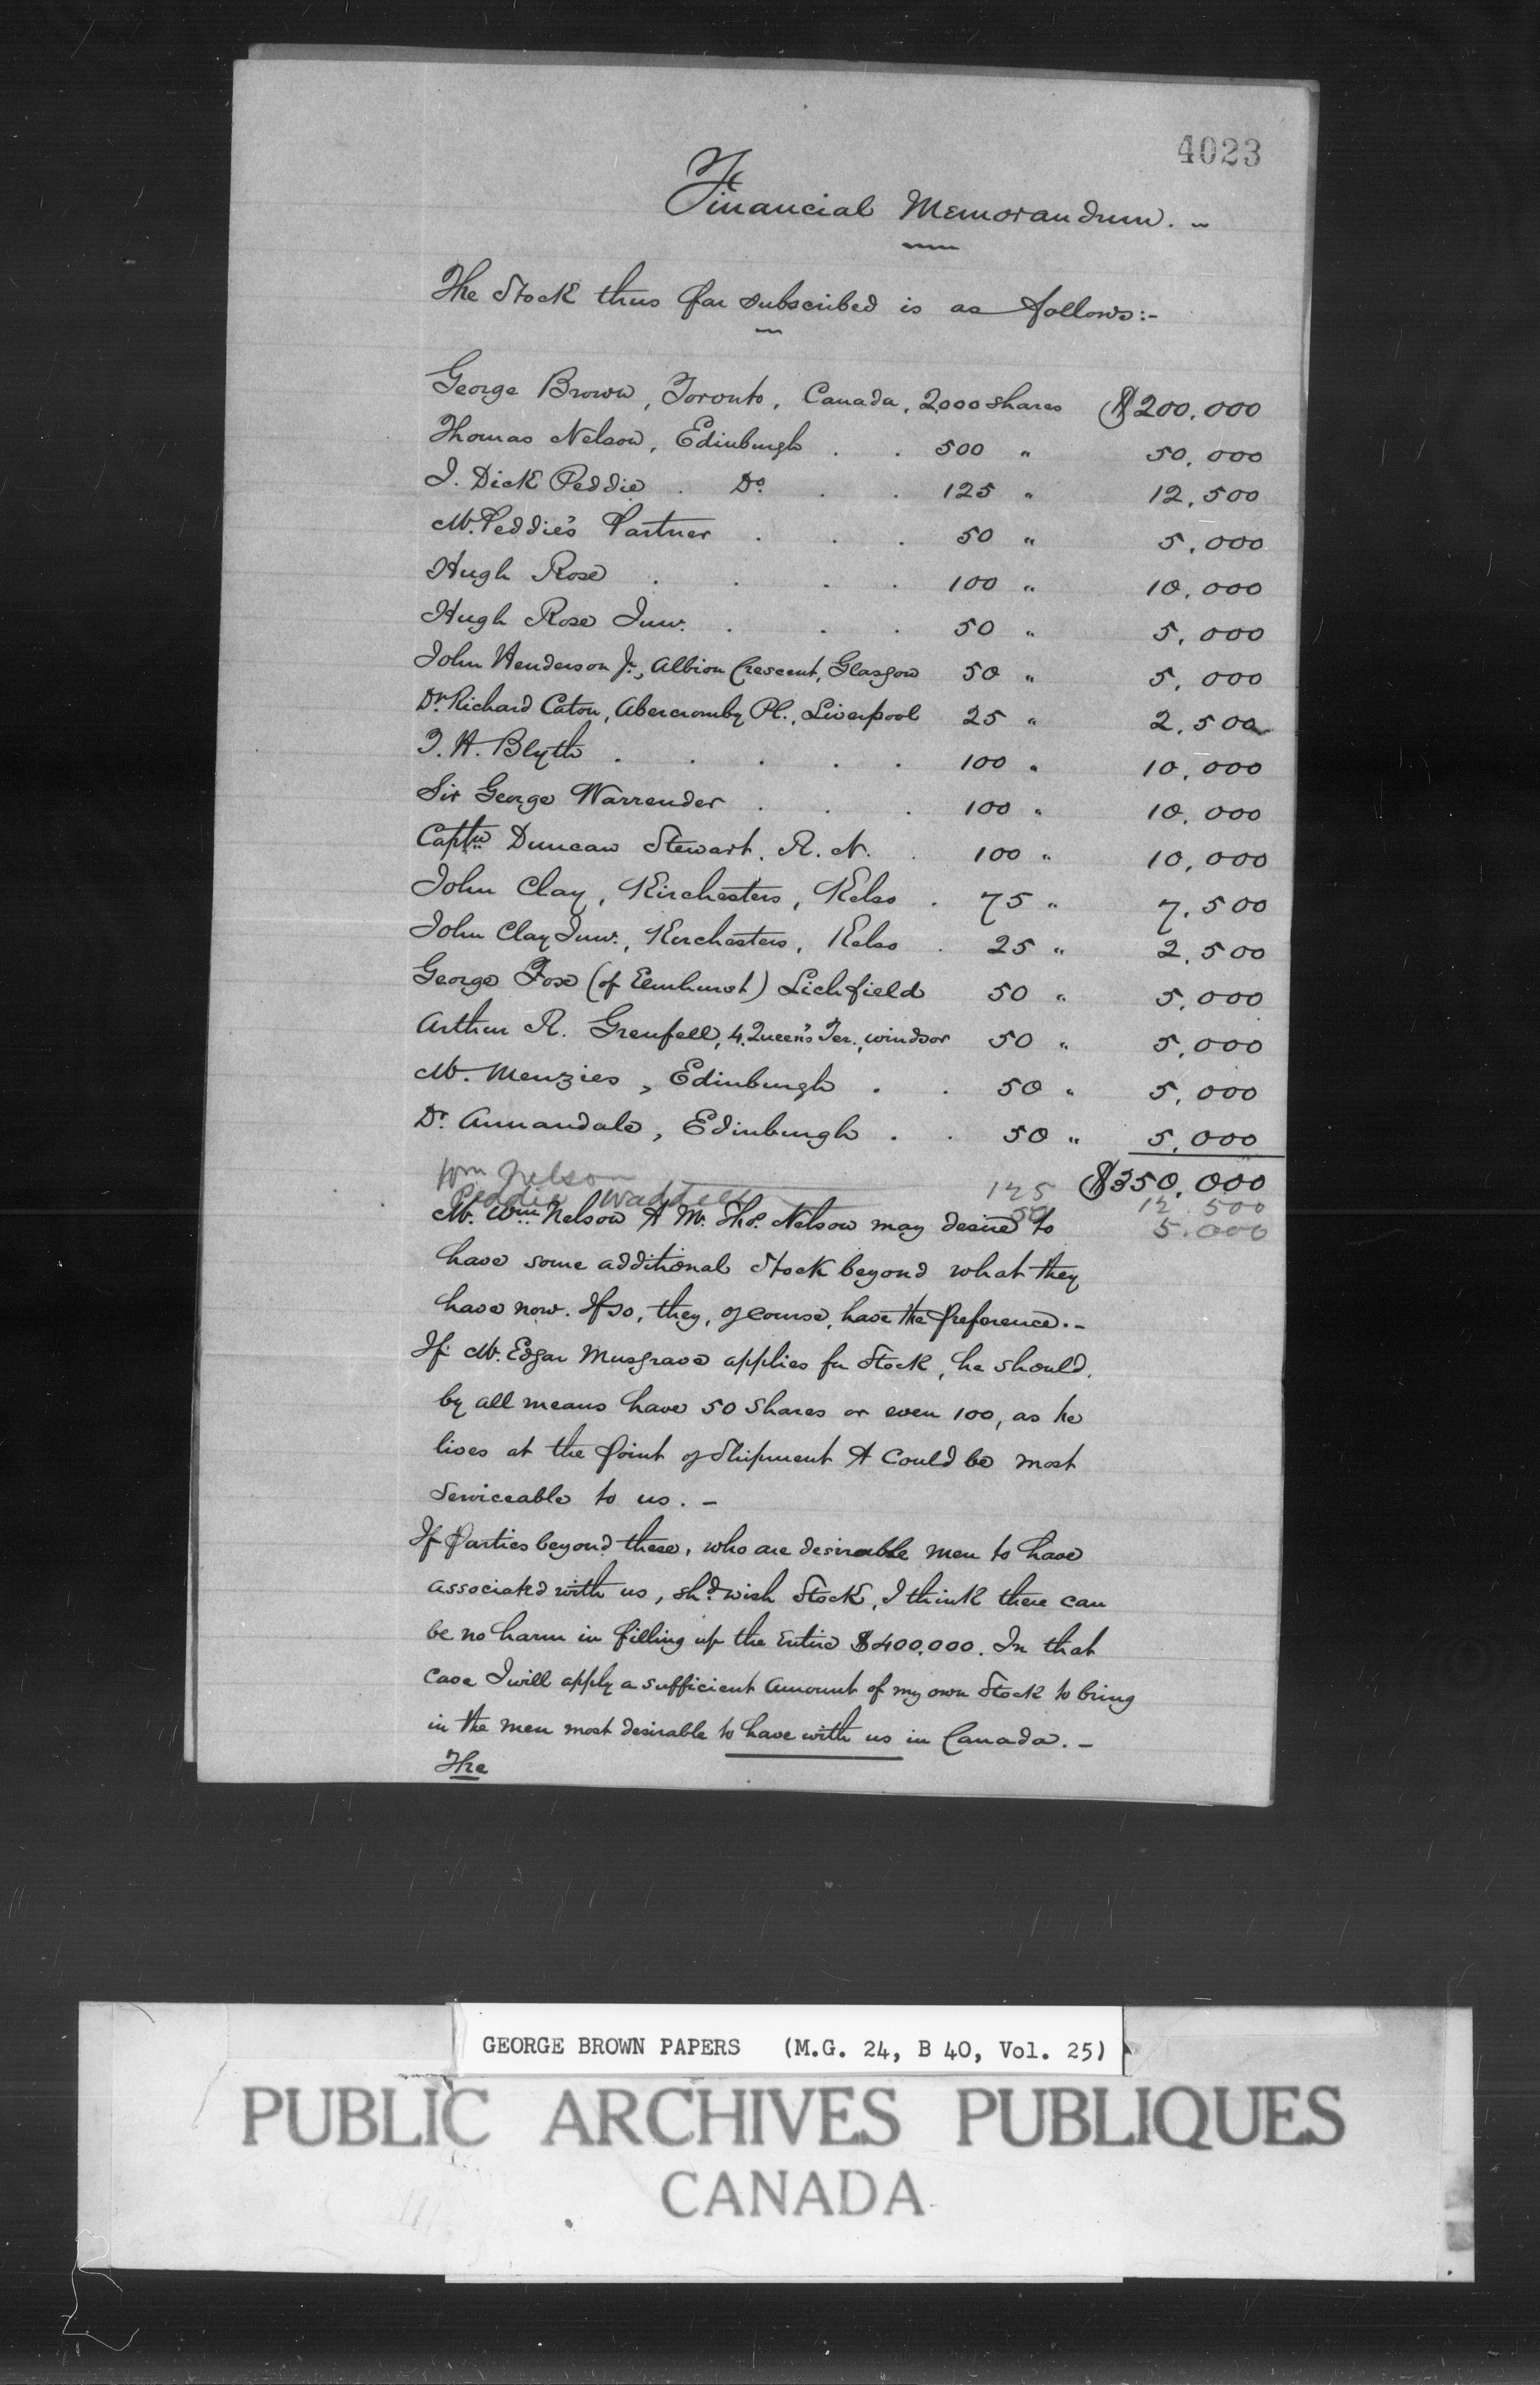 4023
Financial Memorandum. -
The Stock thus far subscribed is as follows:-
George Brown, Toronto, Canada, 2,000 shares $200,000
Thomas Nelson, Edinburgh . . 500 " 50,000
J. Dick Peddie . Do . . 125 " 12,500
Mr. Peddie's Partner . . . 50 " 5,000
Hugh Rose . . . . 100 " 10,000
Hugh Rose Junr. . . . 50 " 5,000
John Henderson Jr., Albion Crescent, Glasgow 50 " 5,000
Dr. Richard Caton, Abercromby Pl., Liverpool 25 " 2,500
J. H. Blyth . . . . . 100 " 10,000
Sir George Warrender . . . 100 " 10,000
Captn Duncan Stewart. R. N. . 100 " 10,000
John Clay, Kirchesters, Kelso . 75 " 7,500
John Clay Junr., Kerchesters, Kelso . 25 " 2,500
George Fox (of Elmhurst) Lichfield 50 " 5,000
Arthur R. Grenfell, 4. Queen's Ter., Windsor 50 " 5,000
Mr. Menzies, Edinburgh . . 50 " 5,000
Dr. Annandale, Edinburgh . . 50 " 5,000
$350,000
Wm Nelson 125 12.500
Peddie Waddell 50 5.000
Mr. Wm. Nelson & Mr. Thos. Nelson may desire to
have some additional Stock beyond what they
have now. If so, they, of course, have the preference. -
If Mr. Edgar Musgrave applies for Stock, he should,
by all means have 50 Shares or even 100, as he
lives at the point of Shipment & could be most
serviceable to us. -
If Parties beyond these, who are desirable men to have
associated with us, shd. wish Stock, I think there can
be no harm in filling up the entire $400,000. In that
case I will apply a sufficient amount of my own Stock to bring
in the men most desirable to have with us in Canada. -
The
GEORGE BROWN PAPERS (M.G. 24, B 40, Vol. 25)
PUBLIC ARCHIVES PUBLIQUES
CANADA